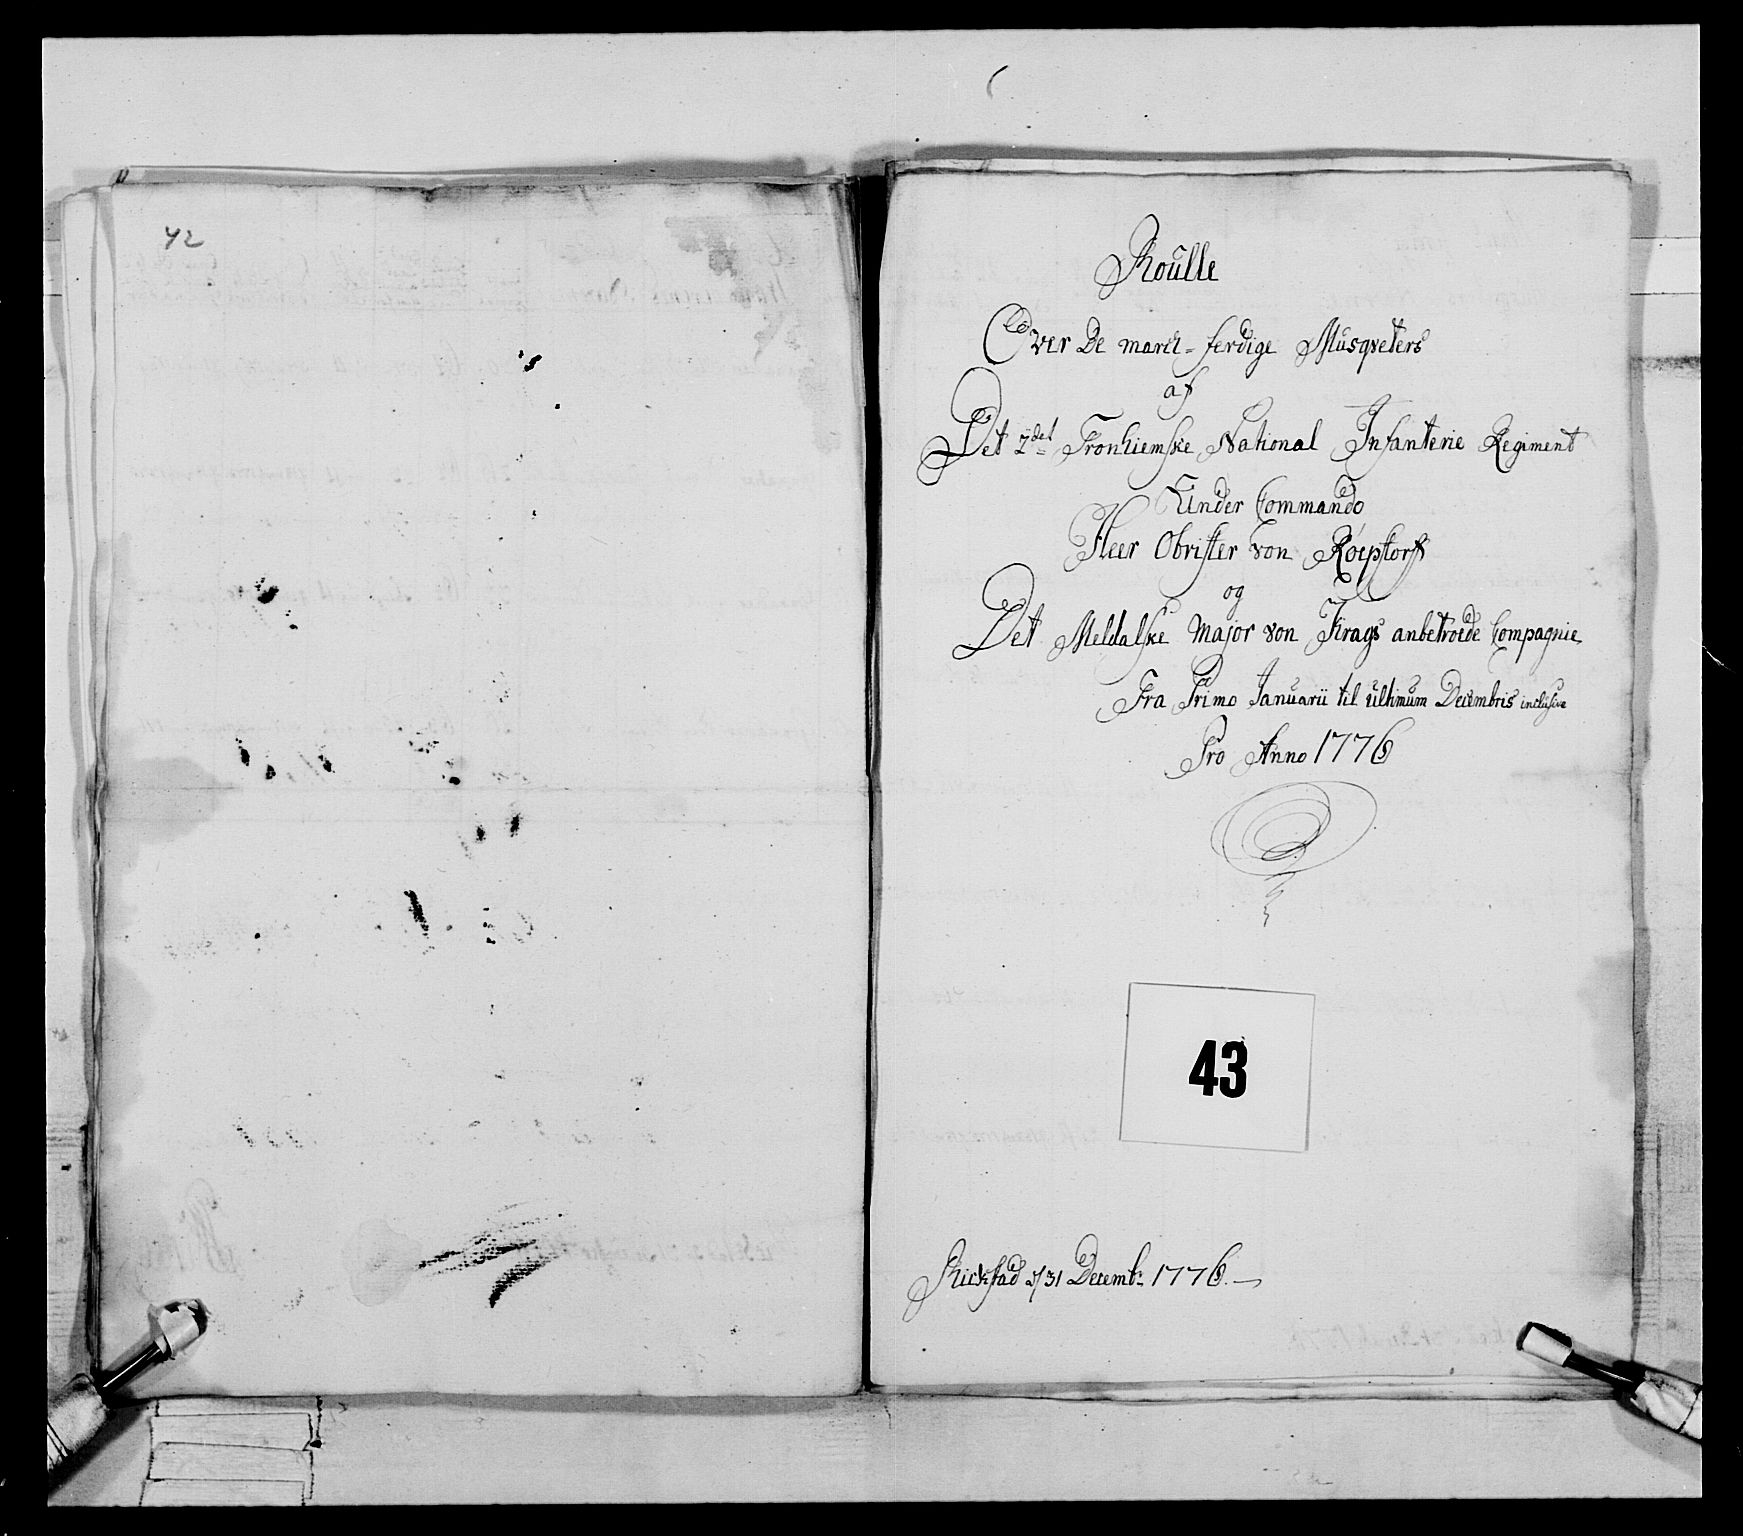 42
Roulle
Over De march-ferdige Musqveters
af
Det 2det Tronhiemske National Infanterie Regiment
Under Commando
Heer Obrister von Röepstorf
og
Det Meldalske Major von Krags anbetroede Compagnie
Fra Primo Januarii til ultimum Decembris inclusive
Pro Anno 1776
43
d/31 Decembr: 1776.